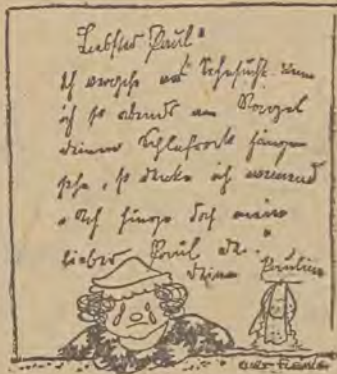 Liebster Paul"
Ich vergehe vor Sehnsucht. Wenn
ich so abends am
deinen Schlafrock hängen
sehe, so denke ich weinend
"Ach hinge doch mein
lieber Paul da."
Deine Pauline